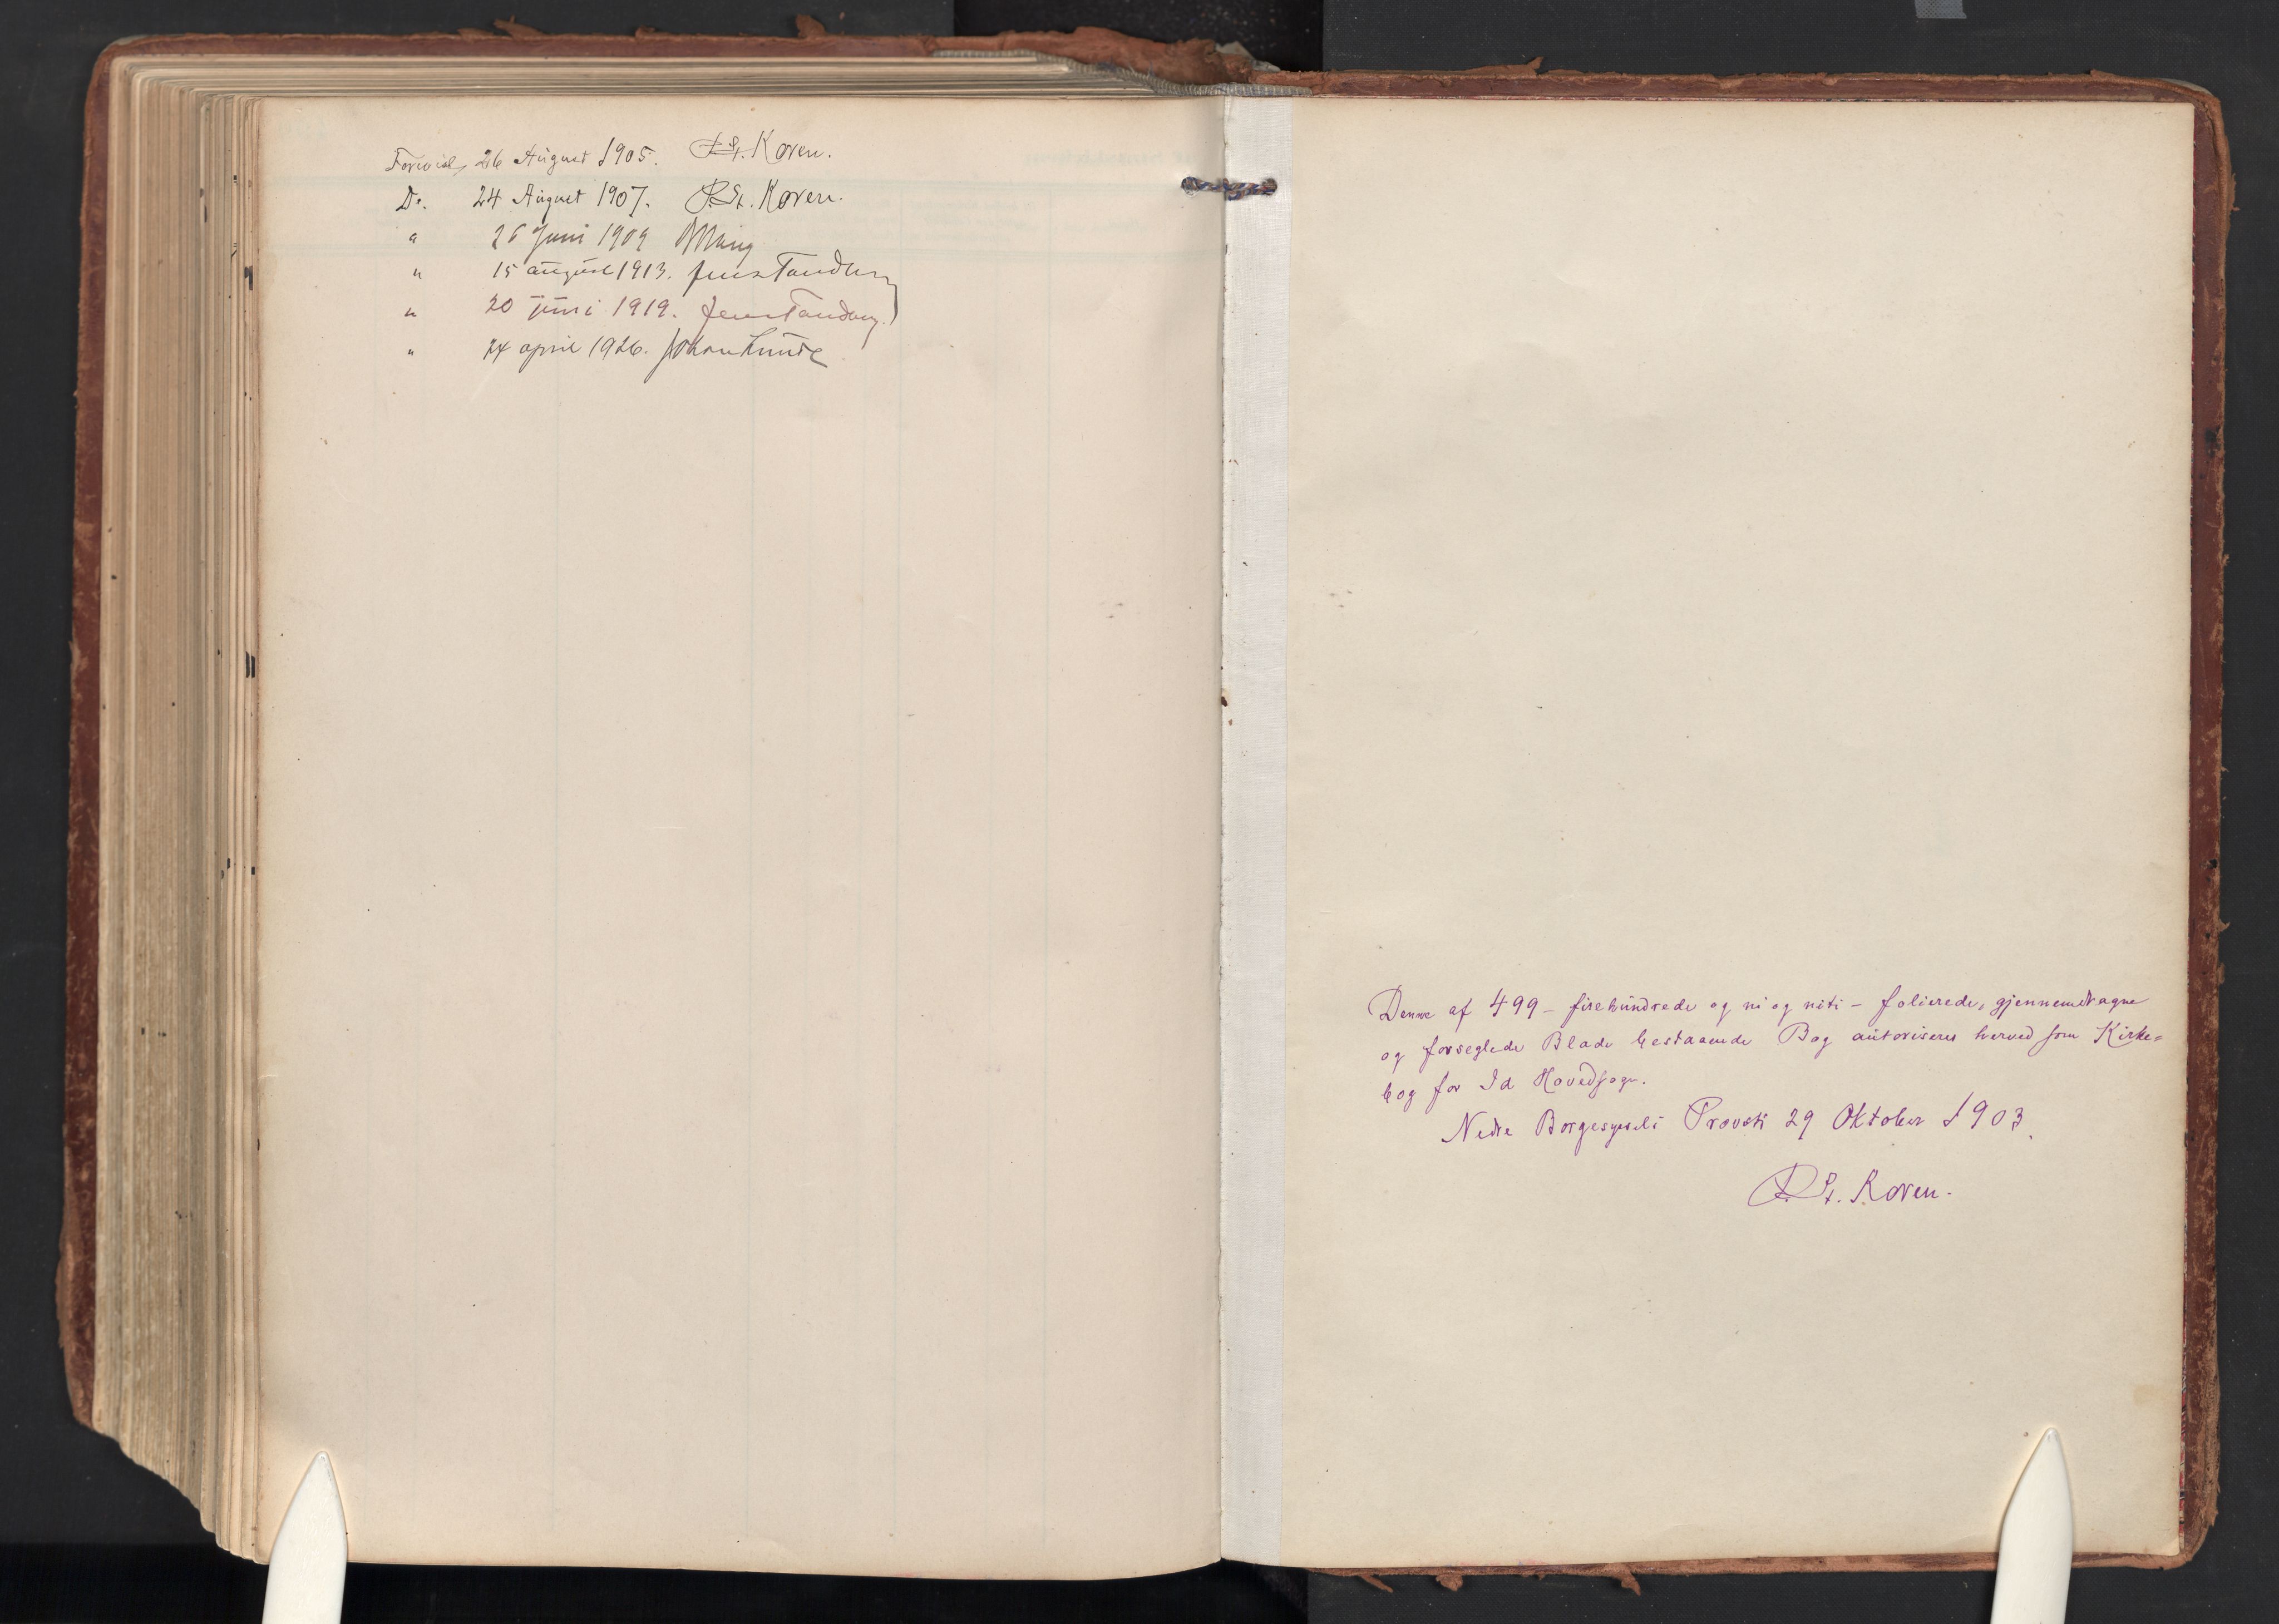 Forevist 26 August 1905. P. St. Koren.
Do. 24 August 1907. P. St. Koren.
" 26 Juni 1909
" 15 august 1913. Jens Tandberg
" 20 juni 1919. Jens Tandberg.
" 24 april 1926. Johan Lunde
Denne af 499 – firehundrede og ni og niti – folierede, gjennemdragne
og forseglede Blade bestaaende Bog autoriseres herved som Kirke=
bog for Id Hovedsogn.
Nedre Borgesyssels Provsti 29 Oktober 1903.
P. St. Koren.